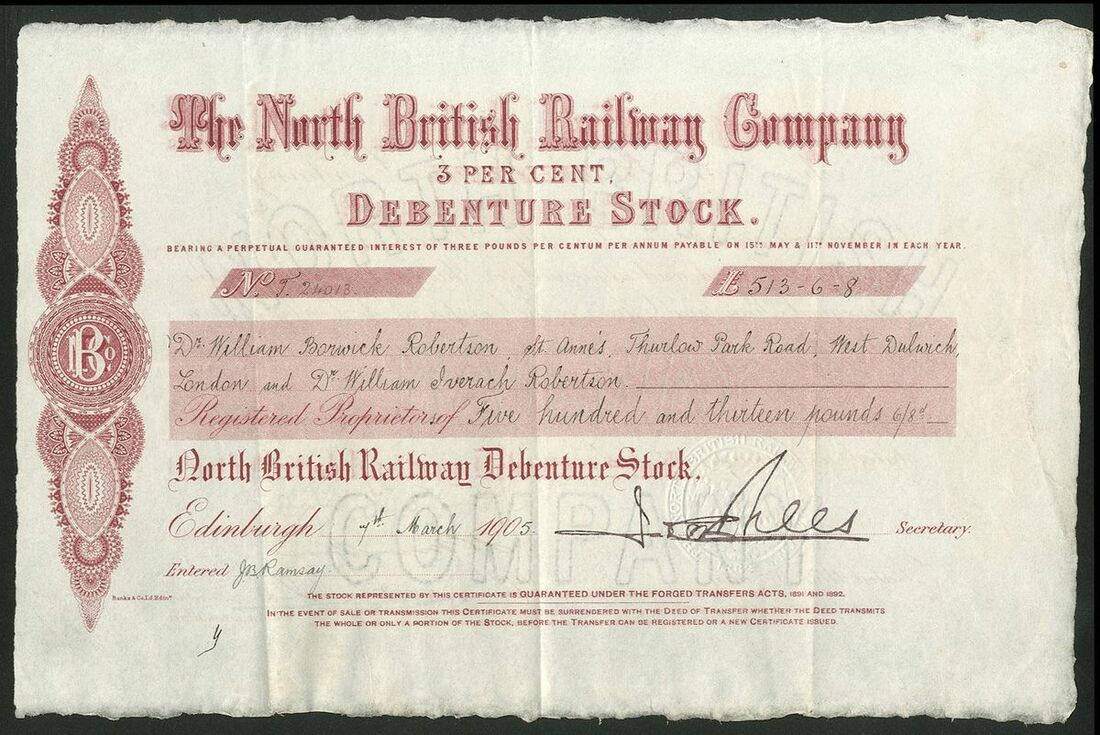 The North British Railway Company
3 PER CENT.
DEBENTURE STOCK.
BEARING A PERPETUAL GUARANTEED INTEREST OF THREE POUNDS PER CENTUM PER ANNUM PAYABLE ON 15TH MAY & 11TH NOVEMBER IN EACH YEAR.
No T. 24013
£ 513-6-8
Dr. William Borwick Robertson, St Anne's, Thurlow Park Road, West Dulwich,
London and Dr. William Iverach Robertson.
Registered Proprietors of Five hundred and thirteen pounds 6/8d
North British Railway Debenture Stock.
Edinburgh 7th March 1905.
Secretary.
Entered JB Ramsay.
Banks & Co. Ld. Edinr.
THE STOCK REPRESENTED BY THIS CERTIFICATE IS GUARANTEED UNDER THE FORGED TRANSFERS ACTS, 1891 AND 1892.
IN THE EVENT OF SALE OR TRANSMISSION THIS CERTIFICATE MUST BE SURRENDERED WITH THE DEED OF TRANSFER WHETHER THE DEED TRANSMITS
THE WHOLE OR ONLY A PORTION OF THE STOCK, BEFORE THE TRANSFER CAN BE REGISTERED OR A NEW CERTIFICATE ISSUED.
B Co
NORTH BRITISH
COMPANY